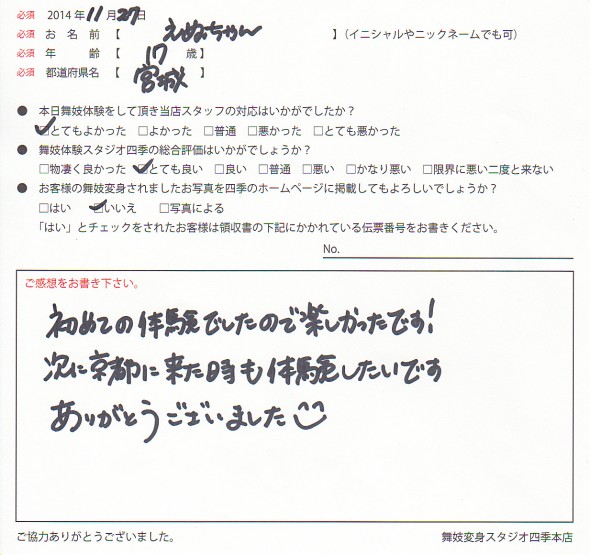 必須 2014年11月27日
必須 お名前【 えぬちゃん 】（イニシャルやニックネームでも可）
必須 年齢【 17 歳】
必須 都道府県名【 宮城 】
● 本日舞妓体験をして頂き当店スタッフの対応はいかがでしたか？
☑とてもよかった □よかった □普通 □悪かった □とても悪かった
● 舞妓体験スタジオ四季の総合評価はいかがでしょうか？
□物凄く良かった ☑とても良い □良い □普通 □悪い □かなり悪い □限界に悪い二度と来ない
● お客様の舞妓変身されましたお写真を四季のホームページに掲載してもよろしいでしょうか？
□はい ☑いいえ □写真による
「はい」とチェックをされたお客様は領収書の下記にかかれている伝票番号をお書きください。
No.
ご感想をお書き下さい。
初めての体験でしたので楽しかったです！
次に京都に来た時も体験したいです
ありがとうございました
ご協力ありがとうございました。 舞妓変身スタジオ四季本店